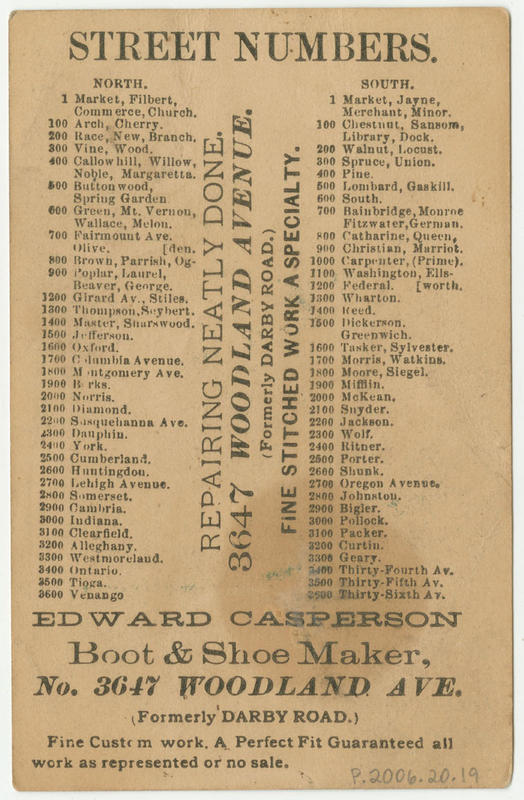 STREET NUMBERS.
NORTH.
1 Market, Filbert,
Commerce, Church.
100 Arch, Cherry.
200 Race, New, Branch.
300 Vine, Wood.
400 Callowhill, Willow,
Noble, Margaretta.
500 Buttonwood,
Spring Garden
600 Green, Mt. Vernon,
Wallace, Melon.
700 Fairmount Ave.
Olive. [den.
800 Brown, Parrish, Og-
900 Poplar, Laurel,
Beaver, George.
1200 Girard Av., Stiles.
1300 Thompson, Seybert.
1400 Master, Sharswood.
1500 Jefferson.
1600 Oxford.
1700 Columbia Avenue.
1800 Montgomery Ave.
1900 Berks.
2000 Norris.
2100 Diamond.
2200 Susquehanna Ave.
2300 Dauphin.
2400 York.
2500 Cumberland.
2600 Huntingdon.
2700 Lehigh Avenue.
2800 Somerset.
2900 Cambria.
3000 Indiana.
3100 Clearfield.
3200 Alleghany.
3300 Westmoreland.
3400 Ontario.
3500 Tioga.
3600 Venango
REPAIRING NEATLY DONE.
3647 WOODLAND AVENUE.
(Formerly DARBY ROAD.)
FINE STITCHED WORK A SPECIALTY.
SOUTH.
1 Market, Jayne,
Merchant, Minor.
100 Chestnut, Sansom,
Library, Dock.
200 Walnut, Locust.
300 Spruce, Union.
400 Pine.
500 Lombard, Gaskill.
600 South.
700 Bainbridge, Monroe
Fitzwater, German.
800 Catharine, Queen,
900 Christian, Marriot.
1000 Carpenter, (Prime).
1100 Washington, Ells-
1200 Federal. [worth.
1300 Wharton.
1400 Reed.
1500 Dickerson.
Greenwich.
1600 Tasker, Sylvester.
1700 Morris, Watkins.
1800 Moore, Siegel.
1900 Mifflin.
2000 McKean.
2100 Snyder.
2200 Jackson.
2300 Wolf.
2400 Ritner.
2500 Porter.
2600 Shunk.
2700 Oregon Avenue.
2800 Johnston.
2900 Bigler.
3000 Pollock.
3100 Packer.
3200 Curtin.
3300 Geary.
3400 Thirty-Fourth Av.
3500 Thirty-Fifth Av.
3600 Thirty-Sixth Av.
EDWARD CASPERSON
Boot & Shoe Maker,
No. 3647 WOODLAND AVE.
(Formerly DARBY ROAD.)
Fine Custom work. A Perfect Fit Guaranteed all
work as represented or no sale.
P.2006.20.19